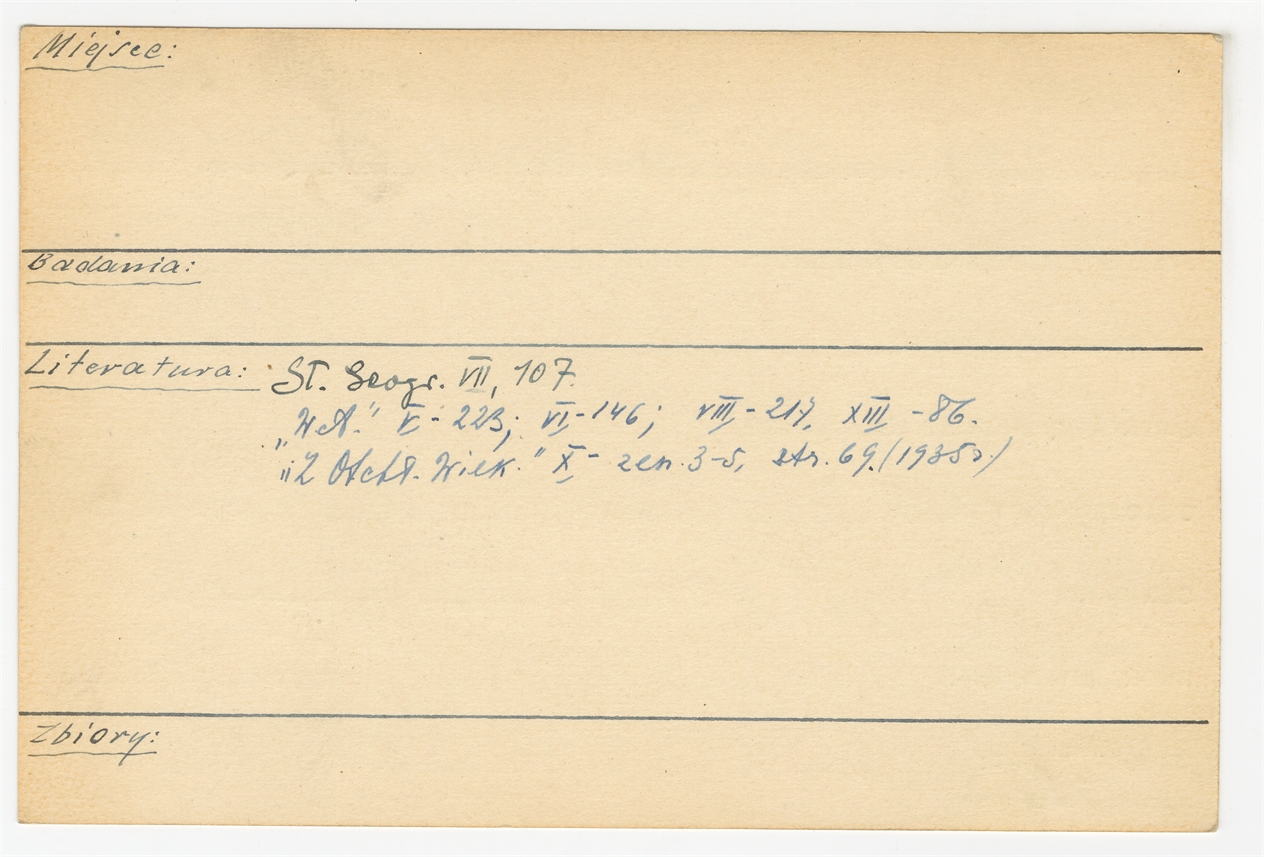 Miejsce:
Badania:
Literatura: Sł. Geogr. VII, 107.
„W.A." V - 223; VI - 146; VIII - 217, XIII - 86.
„Z Otchł. Wiek." X - zesz. 3-5, str. 69. (1935 r.)
Zbiory: